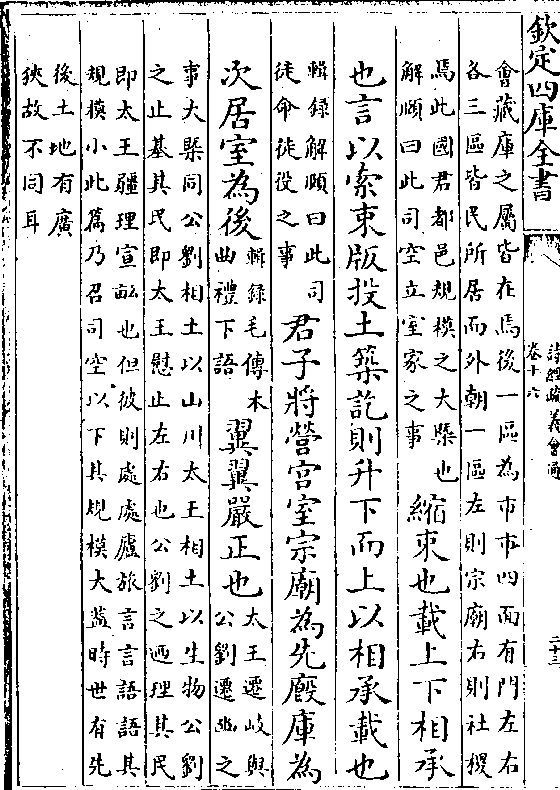 欽定四庫全書
詩經疏義會通
卷十六
二十三
會藏庫之屬皆在焉後一區為市市四面有門左右
各三區皆民所居而外朝一區左則宗廟右則社稷
焉此國君都邑規模之大槩也
解頤曰此司空立室家之事
縮束也載上下相承
也言以索束版投土築訖則升下而上以相承載也
輯録解頤曰此司
徒命徒役之事
君子將營宫室宗廟為先廄庫為
次居室為後
輯録毛傳本
曲禮下語
翼翼嚴正也
太王遷岐與
公劉遷豳之
事大槩同公劉相土以山川太王相土以生物公劉
之止基其民即太王慰止左右也公劉之廼理其民
即太王疆理宣畝也但彼則處處廬旅言言語語其
規模小此篇乃召司空以下其規模大蓋時世有先
後土地有廣
狹故不同耳